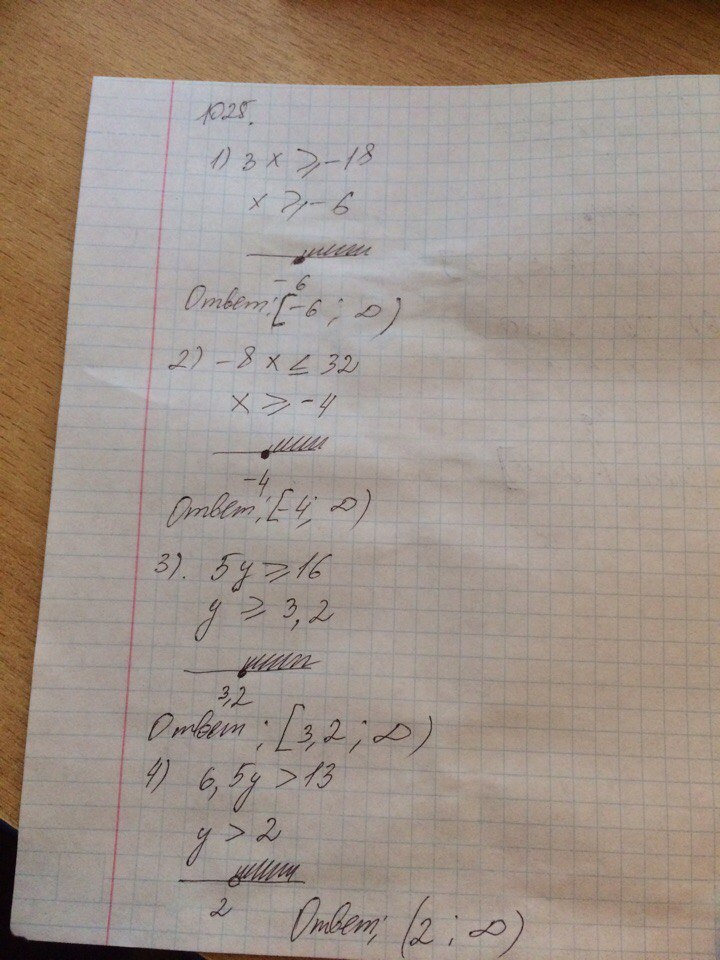 1025.
1) 3x ⩾ -18
x ⩾ -6
-6
Ответ: [-6; ∞)
2) -8x ≤ 32
x ⩾ -4
-4
Ответ: [-4; ∞)
3). 5y ⩾ 16
y ⩾ 3,2
3,2
Ответ: [3,2; ∞)
4) 6,5y > 13
y > 2
2
Ответ: (2; ∞)